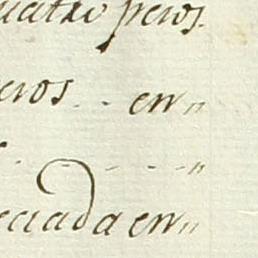 uatro pesos.
eros .. en "
. - - - "
eciada en "